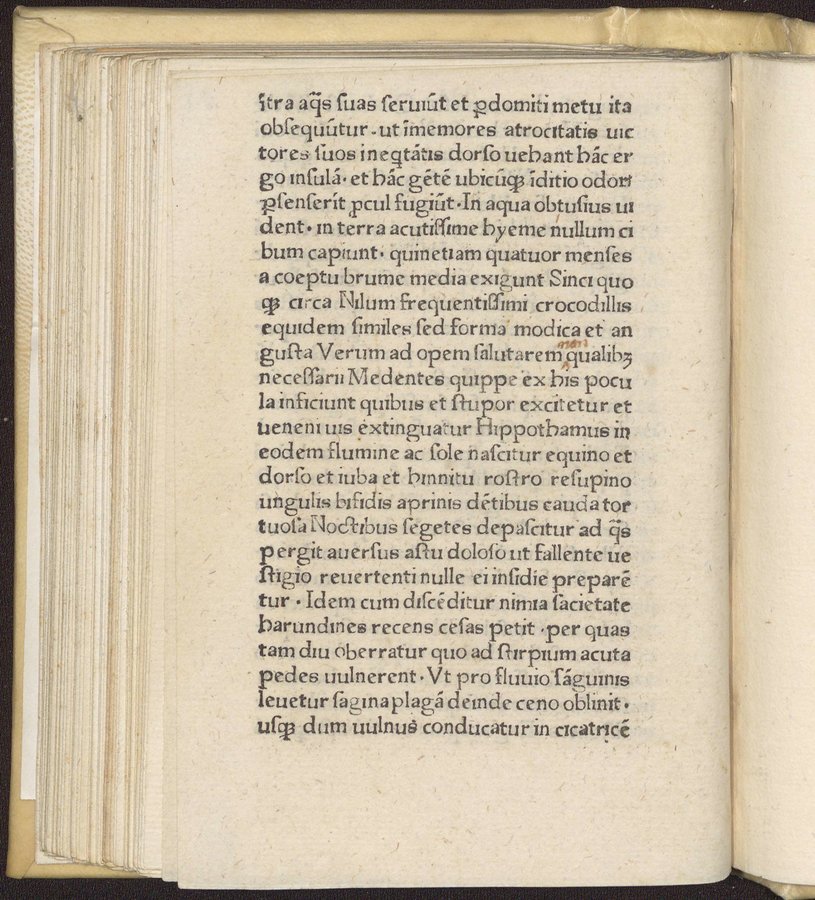 ītra aq̄s ſuas ſeruiūt et ꝑdomiti metu ita
obſequūtur · ut īmemores atrocitatis uic
tores ſuos ineq̇tātis dorſo uehant hāc er
go inſulā · et hāc gētē ubicūqꝫ īditio odori
ꝑſenſerīt ꝓcul fugiūt · In aqua obtuſius ui
dent · in terra acutiſſime hyeme nullum ci
bum capiunt · quinetiam quatuor menſes
a coeptu brume media exigunt Sinci quo
qꝫ circa Nilum frequentiſſimi crocodillis
equidem ſimiles ſed forma modica et an
guſta Verum ad opem ſalutarem qualibꝫ
neceſſarii Medentes quippe ex his pocu
la inficiunt quibus et ſtupor excitetur et
ueneni uis extinguatur Hippothamus in
eodem flumine ac ſole naſcitur equino et
dorſo et iuba et hinnitu roſtro reſupino
ungulis bifidis aprinis dētibus cauda tor
tuoſa Noctibus ſegetes depaſcitur ad q̄s
pergit auerſus aſtu doloſo ut fallente ue
ſtigio reuertenti nulle ei inſidie preparē
tur · Idem cum diſcēditur nimia ſacietate
harundines recens ceſas petit · per quas
tam diu oberratur quo ad ſtirpium acuta
pedes uulnerent · Vt pro fluuio ſāguinis
leuetur ſagina plagā deinde ceno oblinit ·
uſqꝫ dum uulnus conducatur in cicatricē